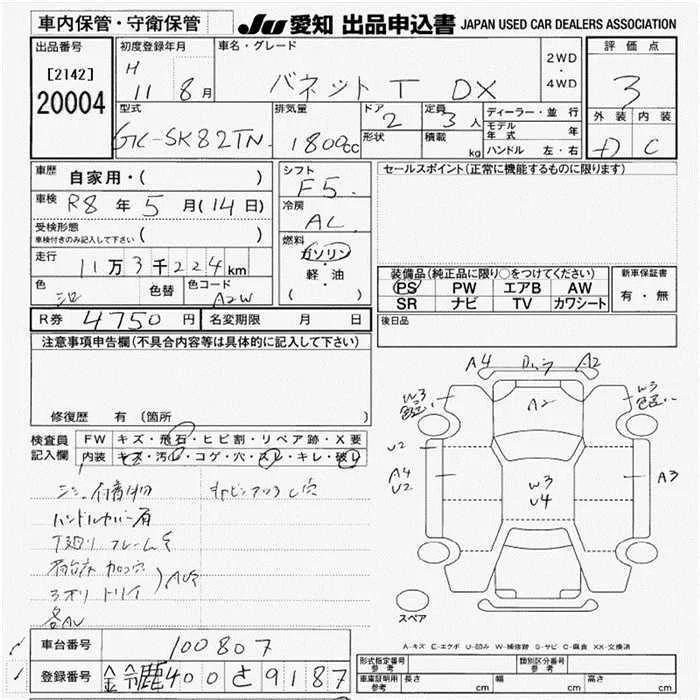 車内保管・守衛保管
JU 愛知 出品申込書 JAPAN USED CAR DEALERS ASSOCIATION
出品番号
[2142]
20004
初度登録年月
H 11 8 月
車名・グレード
バネット T DX
2WD
・
4WD
評価点
3
外装 内装
D C
型式
GC-SK82TN
排気量
1800cc
ドア
2
形状
定員
3 人
積載
kg
ディーラー・並行
モデル年式 年
ハンドル 左・右
車歴
自家用・( )
車検 R8 年 5 月(14日)
受検形態
車検付きのみ記入して下さい ( )
走行 11万3千224km
色
シロ
色替
色コード
A2W
シフト
F5
冷房
AC
燃料
ガソリン
・
軽・油
( )
セールスポイント(正常に機能するものに限ります)
装備品(純正品に限り○をつけてください)
PS PW エアB AW
SR ナビ TV カワシート
新車保証書
有・無
後日品
R券 4750 円
名変期限 月 日
注意事項申告欄(不具合内容等は具体的に記入して下さい)
修復歴 有(箇所 )
検査員
記入欄
FW キズ・飛石・ヒビ割・リペア跡・X要
内装 キズ・汚レ・コゲ・穴・スレ・キレ・破レ
ハンドルカバー有
A4 A2
W3 W3
A2
U2
A4
U2
W3
U4
A3
スペア
A-キズ E-エクボ U-凹み W-補修跡 S-サビ C-腐食 XX-交換済
車台番号 100807
登録番号 鈴鹿400さ9187
形式指定番号
参考
類別区分番号
参考
車庫証明用
参考
長さ cm 幅 cm 高さ cm